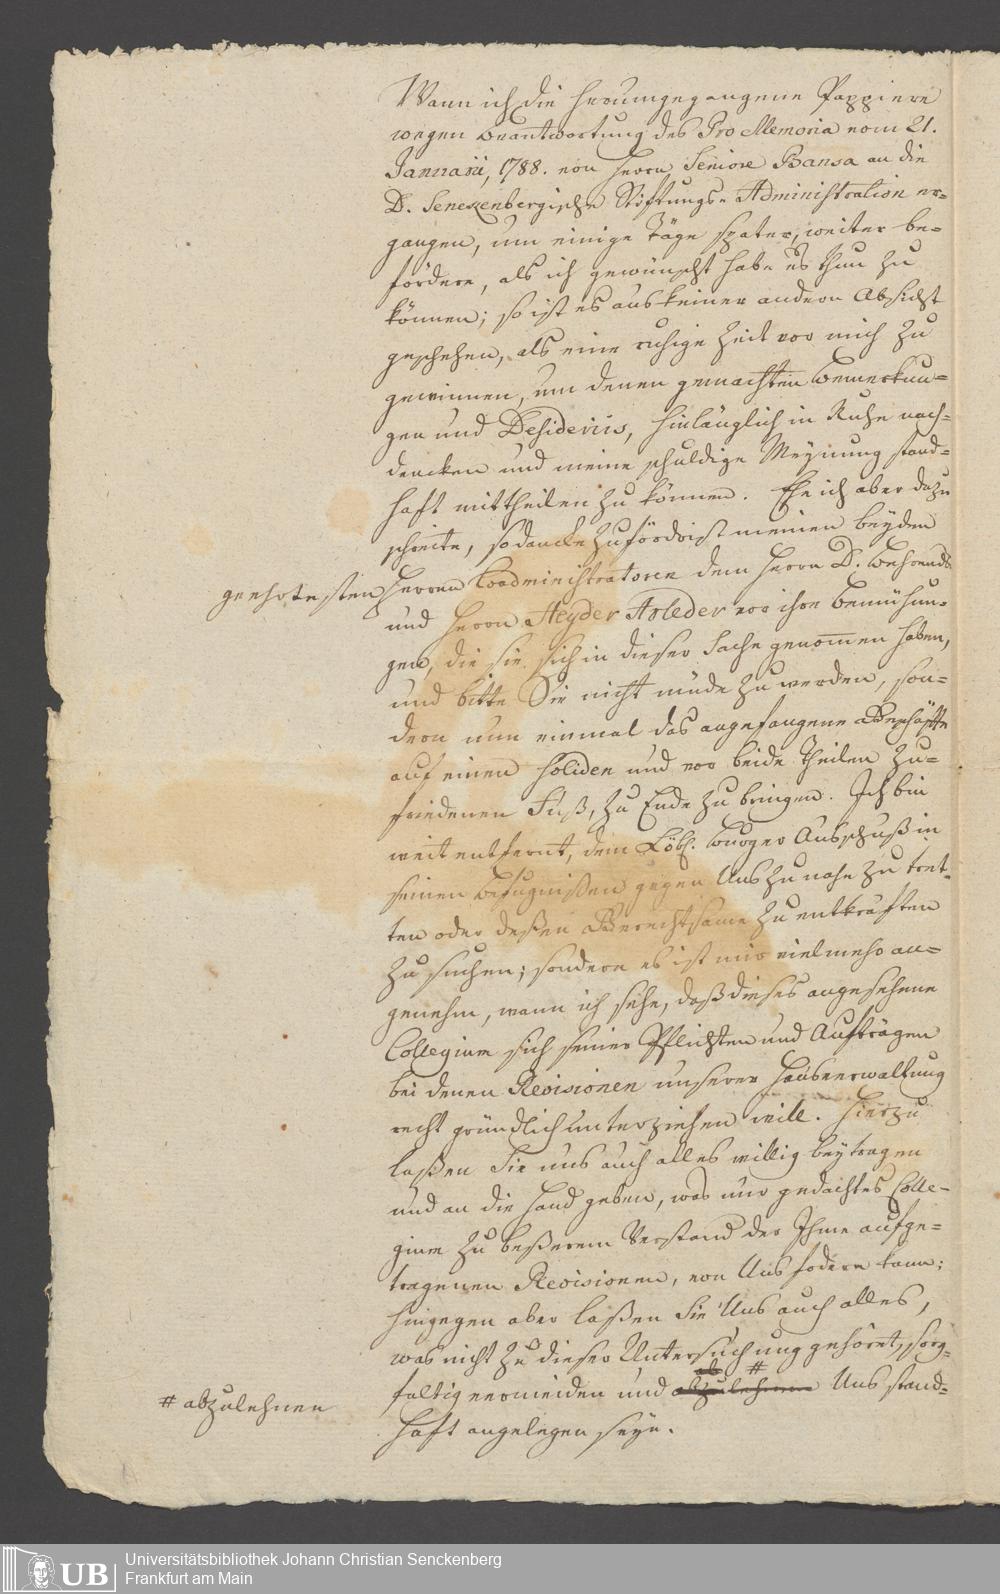 Wann ich die herumgegangene Pappiere
wegen Beantwortung des Pro Memoria vom 21.
Januarii, 1788. von Herrn Seniore Bansa an die
D. Senckenbergische Stiftungs- Administration er=
gangen, um einige Täge später, weiter be=
fördere, als ich gewünscht habe es thun zu
können; so ist es aus keiner andern Absicht
geschehen, als eine ruhige Zeit vor mich zu
gewinnen, um denen gemachten Bemerkun=
gen und Desideriis, hinlänglich in Ruhe nach=
dencken und meine schuldige Meynung stand=
haft mittheilen zu können. Ehe ich aber dazu
schreite, so dancke zufördrist meinen beyden
geehrtesten Herren Coadministratoren dem Herrn D. Behrends
und Herrn Heyder Arleder vor ihre Bemühun=
gen, die sie sich in dieser Sache genommen haben,
und bitte Sie nicht müde zu werden, son=
dern nun einmal das angefangene Geschäfte
auf einen soliden und vor beide Theilen zu=
friedenen Fuß, zu Ende zu bringen. Ich bin
weit entfernt, dem Löbl. Burger Ausschuß in
seinen Befugnißen gegen Uns zu nahe zu tret=
ten oder deßen Gerechtsame zu entkräften
zu suchen; sondern es ist mir vielmehr an=
genehm, wann ich sehe, daß dieses angesehene
Collegium sich seiner Pflichten und Aufträgen
bei denen Revisionen unserer Hausverwaltung
recht gründlich unterziehen will. Hierzu
laßen Sie uns auch alles willig beytragen
und an die Hand geben, was nur gedachtes Colle=
gium zu beßerem Verstand der Ihme aufge=
tragenen Revisionen, von Uns fodern kann;
hingegen aber laßen Sie Uns auch alles,
was nicht zu dieser Untersuchung gehöret, sorg=
fältig vermeiden und abzulehnen # Uns stand=
# abzulehnen
haft angelegen seyn.
Universitätsbibliothek Johann Christian Senckenberg
Frankfurt am Main
UB